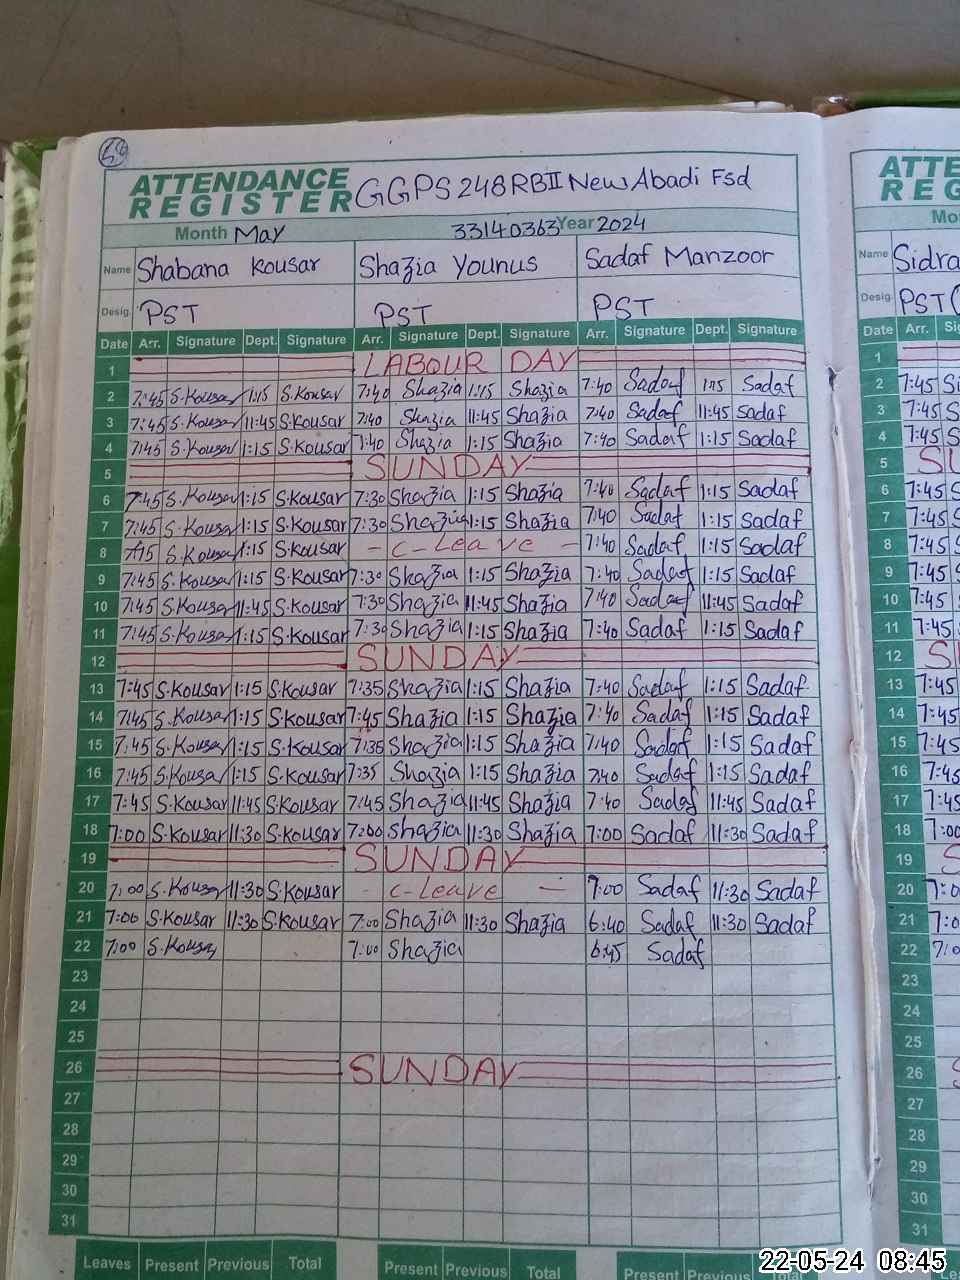 ATTENDANCE REGISTER GGPS 248RBII New Abadi Fsd ATTE
REG
Month May 33140363 Year 2024 Mo
Name Shabana Kousar Shazia Younus Sadaf Manzoor Name Sidra
Desig. PST PST PST Desig. PST(
Date Arr. Signature Dept. Signature Arr. Signature Dept. Signature Arr. Signature Dept. Signature Date Arr.
1 LABOUR DAY 1
2 7:45 S.Kousar 1:15 S.Kousar 7:40 Shazia 1:15 Shazia 7:40 Sadaf 1:15 Sadaf 2 7:45
3 7:45 S.Kousar 11:45 S.Kousar 7:40 Shazia 11:45 Shazia 7:40 Sadaf 11:45 Sadaf 3 7:45
4 7:45 S.Kousar 1:15 S.Kousar 7:40 Shazia 1:15 Shazia 7:40 Sadaf 1:15 Sadaf 4 7:45
5 SUNDAY 5 SU
6 7:45 S.Kousar 1:15 S.Kousar 7:30 Shazia 1:15 Shazia 7:40 Sadaf 1:15 Sadaf 6 7:45
7 7:45 S.Kousar 1:15 S.Kousar 7:30 Shazia 1:15 Shazia 7:40 Sadaf 1:15 Sadaf 7 7:45
8 S.Kousar 1:15 S.Kousar - C-Leave - 7:40 Sadaf 1:15 Sadaf 8 7:45
9 7:45 S.Kousar 1:15 S.Kousar 7:30 Shazia 1:15 Shazia 7:40 Sadaf 1:15 Sadaf 9 7:45
10 7:45 S.Kousar 11:45 S.Kousar 7:30 Shazia 11:45 Shazia 7:40 Sadaf 11:45 Sadaf 10 7:45
11 7:45 S.Kousar 1:15 S.Kousar 7:30 Shazia 1:15 Shazia 7:40 Sadaf 1:15 Sadaf 11 7:45
12 SUNDAY 12 S
13 7:45 S.Kousar 1:15 S.Kousar 7:35 Shazia 1:15 Shazia 7:40 Sadaf 1:15 Sadaf 13 7:45
14 7:45 S.Kousar 1:15 S.Kousar 7:45 Shazia 1:15 Shazia 7:40 Sadaf 1:15 Sadaf 14 7:45
15 7:45 S.Kousar 1:15 S.Kousar 7:35 Shazia 1:15 Shazia 7:40 Sadaf 1:15 Sadaf 15 7:45
16 7:45 S.Kousar 1:15 S.Kousar 7:35 Shazia 1:15 Shazia 7:40 Sadaf 1:15 Sadaf 16 7:45
17 7:45 S.Kousar 11:45 S.Kousar 7:45 Shazia 11:45 Shazia 7:40 Sadaf 11:45 Sadaf 17 7:45
18 7:00 S.Kousar 11:30 S.Kousar 7:00 Shazia 11:30 Shazia 7:00 Sadaf 11:30 Sadaf 18 7:00
19 SUNDAY 19 S
20 7:00 S.Kousar 11:30 S.Kousar - C-Leave - 7:00 Sadaf 11:30 Sadaf 20 7:0
21 7:00 S.Kousar 11:30 S.Kousar 7:00 Shazia 11:30 Shazia 6:40 Sadaf 11:30 Sadaf 21 7:0
22 7:00 S.Kousar 7:00 Shazia 6:45 Sadaf 22 7:0
23 23
24 24
25 25
26 SUNDAY 26 S
27 27
28 28
29 29
30 30
31 31
Leaves Present Previous Total Present Previous Total Present Previous Total
22-05-24 08:45